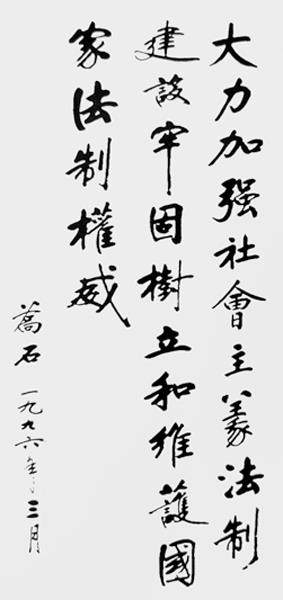 大力加强社會主義法制
建設牢固樹立和維護國
家法制權威
喬石 一九九六年三月